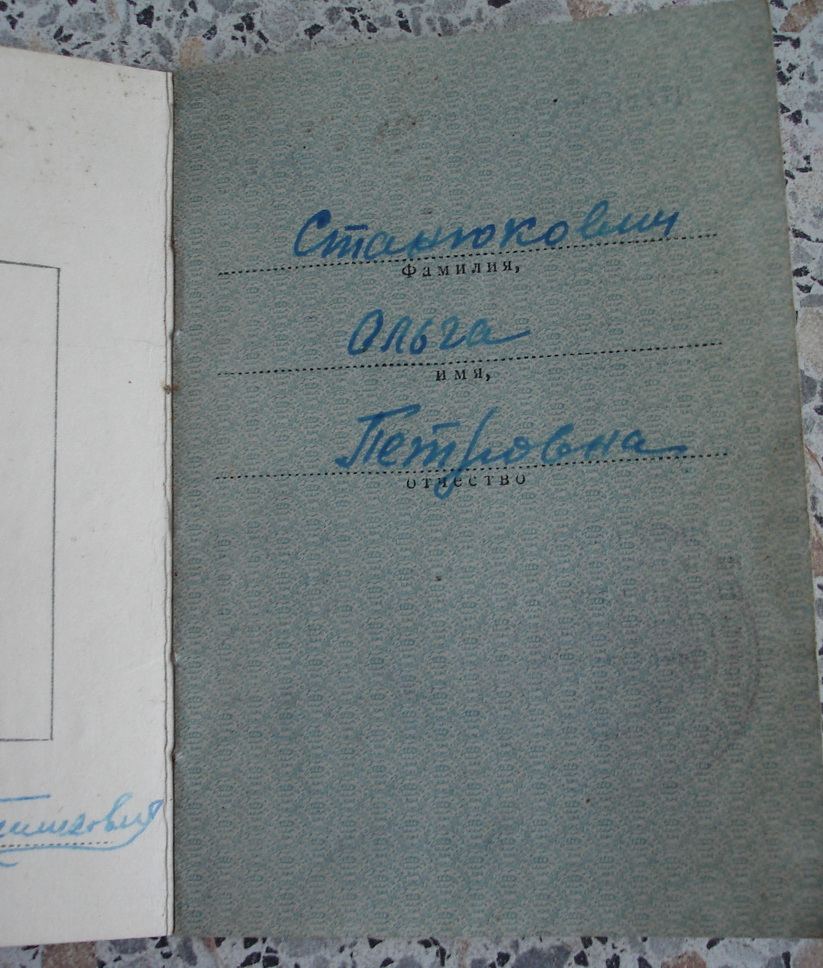 Станюкович
Фамилия,
Ольга
имя,
Петровна
отчество